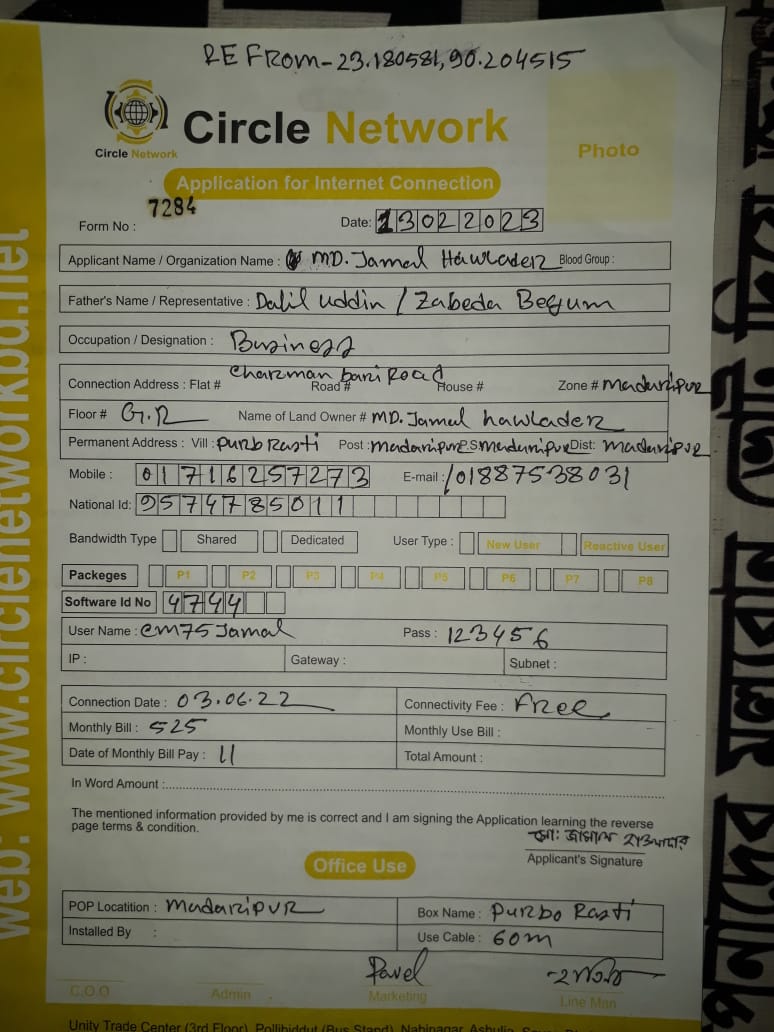 RE FROM-23.180581,90.204515
Circle Network
Circle Network
Photo
Application for Internet Connection
Form No : 7284
Date: 13022023
Applicant Name / Organization Name : MD. Jamal Hawlader Blood Group :
Father's Name / Representative : Dalil uddin / Zabeda Begum
Occupation / Designation : Business
Connection Address : Flat # Charman bari Road Road # House # Zone # madaripur
Floor # G.R Name of Land Owner # MD. Jamal hawlader
Permanent Address : Vill : purb Rasti Post : madaripur P.S madaripur Dist: madaripur
Mobile : 01716257273 E-mail : /01887538031
National Id: 9574785011
Bandwidth Type Shared Dedicated User Type : New User Reactive User
Packeges P1 P2 P3 P4 P5 P6 P7 P8
Software Id No 4744
User Name : cm75Jamal Pass : 123456
IP : Gateway : Subnet :
Connection Date : 03.06.22 Connectivity Fee : Free
Monthly Bill : 525 Monthly Use Bill :
Date of Monthly Bill Pay : 11 Total Amount :
In Word Amount :
The mentioned information provided by me is correct and I am signing the Application learning the reverse
page terms & condition.
মোঃ জামাল হাওলাদার
Applicant's Signature
Office Use
POP Locatition : madaripur Box Name : Purbo Rasti
Installed By : Use Cable : 60m
Pavel
C.O.O Admin Marketing Line Man
Unity Trade Center (3rd Floor), Pollibiddut (Bus Stand), Nabinagar, Ashulia
web: www.circlenetworkbd.net